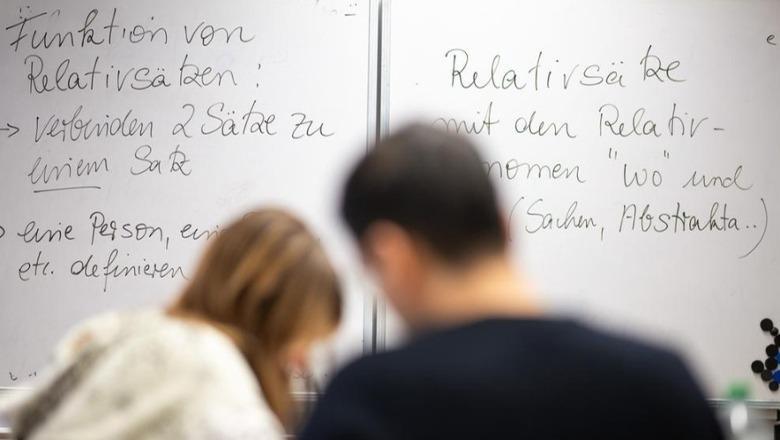 Funktion von
Relativsätzen :
→ verbinden 2 Sätze zu
einem Satz
eine Person,
etc. definieren
Relativsätze
mit den Relativ-
"wo" und
(Sachen, Abstrakta..)